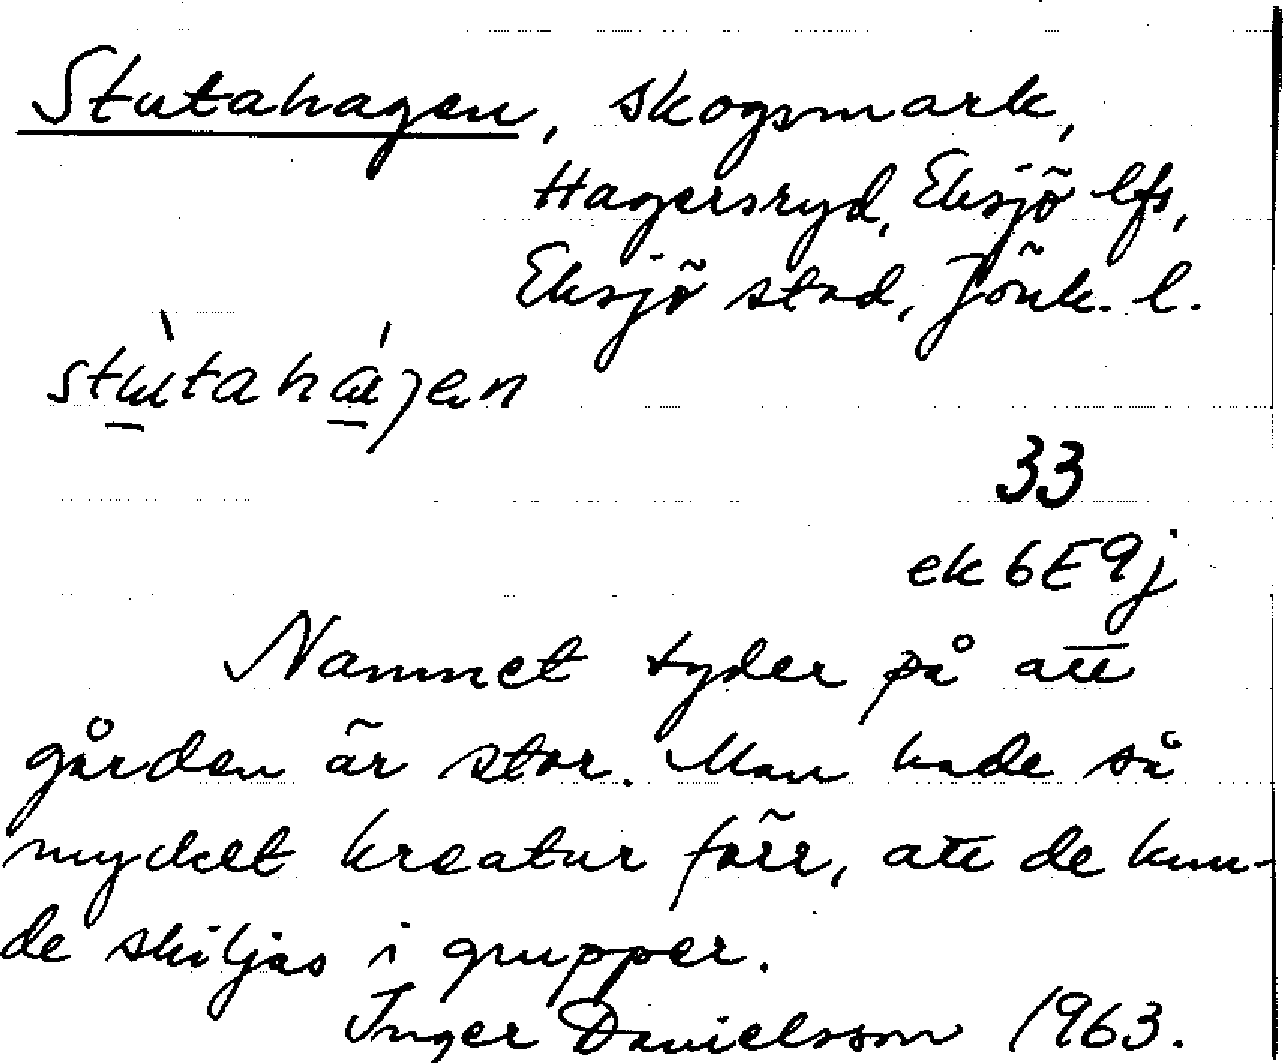 Stutahagen, skogsmark,
Hagersryd, Eksjö lfs,
Eksjö stad, Jönk. l.
stùtahágen
33
ek 6E9j
Namnet tyder på att
gården är stor. Man hade så
mycket kreatur förr, att de kun-
de skiljas i grupper.
Inger Danielsson 1963.